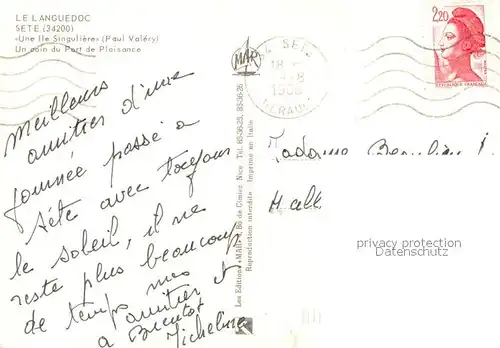 LE LANGUEDOC
SETE (34200)
«Une Ile Singulière» (Paul Valéry)
Un coin du Port de Plaisance
Meilleurs
amitier d'une
journée passé a
Séte avec toujours
le soleil, il ne
reste plus beaucoup
de temps mes
amitier et
a Bientot
Micheline
Les Editions «MAR», Bd de Cimiez Nice Tel.
Reproduction interdite Imprimé en Italie
MAR
SETE
18
8
1988
HERAULT
2,20
REPUBLIQUE FRANÇAISE
Madame
Hall
privacy protection
Datenschutz